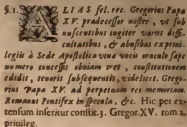 §.1. ALIAS fel. rec. Gregorius Papa
XV. prædecessor noster, vt sub
nascentibus iugiter varijs diffi-
cultatibus, & abusibus ex priui-
legijs à Sede Apostolica viuæ vocis oraculo sine
numero concessis obuiam ret, constitutionem
edidit, tenoris subsequentis, videlicet. Gregorius
Papa XV. ad perpetuam rei memoriam.
Romanus Pontifex in specula, &c. Hic pet ex-
tensum inseritur constit. 3. Gregor. XV. tom. 2.
priuileg.